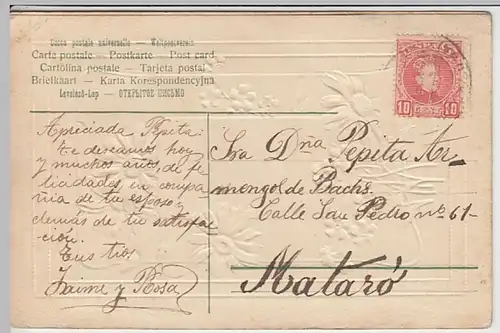 Union postale universelle — Weltpostverein
Carte postale — Postkarte — Post card
Cartolina postale — Tarjeta postal
Briefkaart — Karta Korespondencyjna
Levelező-Lap — ОТКРЫТОЕ ПИСЬМО
10 10
Apreciada Pepita:
te deseamos hoy
y muchos años, de fe-
licidades en compa
ñia de tu esposo y
demás de tu satisfa
ción.
Tus tios
Jaime y Rosa
Sra Dña Pepita Ar
mengol de Bachs.
Calle San Pedro nº 61-
Mataró